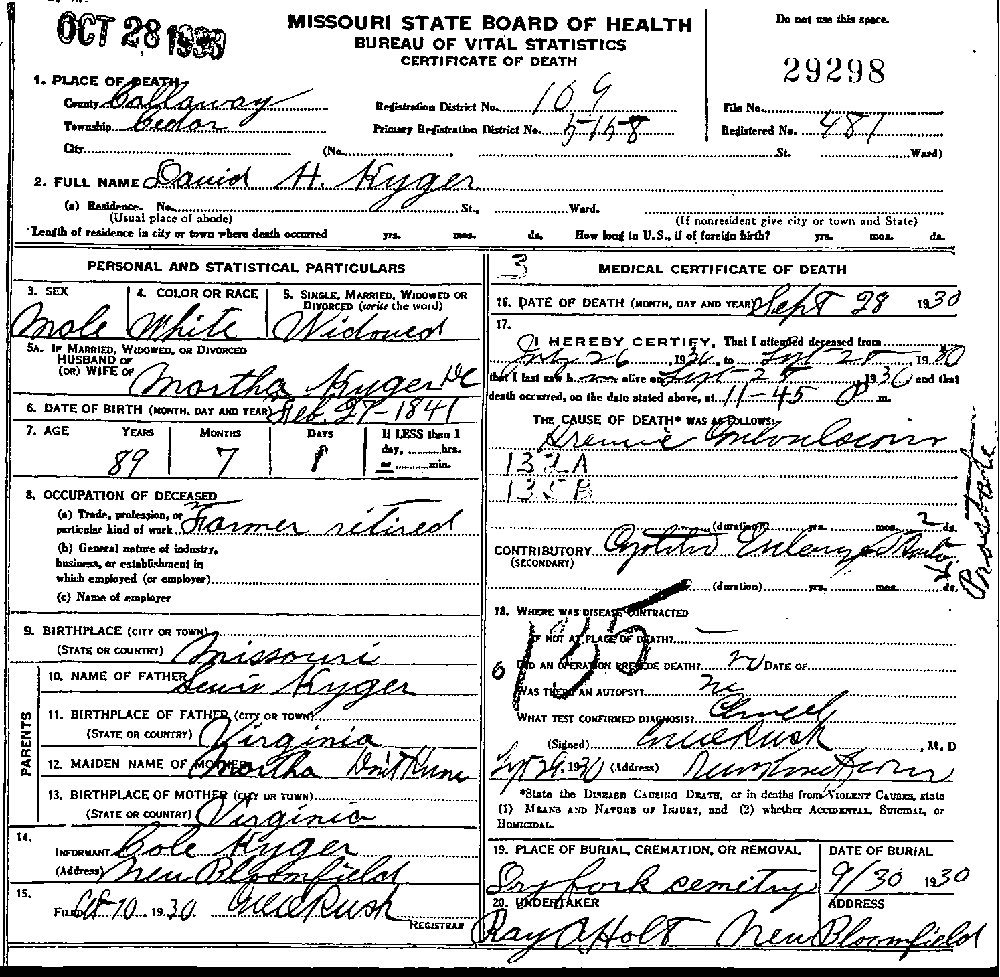 OCT 28 1930
MISSOURI STATE BOARD OF HEALTH
BUREAU OF VITAL STATISTICS
CERTIFICATE OF DEATH
Do not use this space.
29298
1. PLACE OF DEATH
County Callaway
Township Cedar
City (No. St. Ward)
Registration District No. 109
Primary Registration District No. 5158
File No.
Registered No. 481
2. FULL NAME David H. Kyger
(a) Residence. No. St., Ward.
(Usual place of abode) (If nonresident give city or town and State)
Length of residence in city or town where death occurred yrs. mos. ds. How long in U.S., if of foreign birth? yrs. mos. ds.
PERSONAL AND STATISTICAL PARTICULARS
3. SEX Male
4. COLOR OR RACE White
5. SINGLE, MARRIED, WIDOWED OR DIVORCED (write the word) Widowed
5A. IF MARRIED, WIDOWED, OR DIVORCED
HUSBAND OF
(OR) WIFE OF Martha Kyger Dc
6. DATE OF BIRTH (MONTH, DAY AND YEAR) Feb. 27-1841
7. AGE YEARS MONTHS DAYS If LESS than 1 day, hrs. or min.
89 7 1
8. OCCUPATION OF DECEASED
(a) Trade, profession, or particular kind of work Farmer retired
(b) General nature of industry, business, or establishment in which employed (or employer)
(c) Name of employer
9. BIRTHPLACE (CITY OR TOWN)
(STATE OR COUNTRY) Missouri
PARENTS
10. NAME OF FATHER Lewis Kyger
11. BIRTHPLACE OF FATHER (CITY OR TOWN)
(STATE OR COUNTRY) Virginia
12. MAIDEN NAME OF MOTHER Martha Dont Know
13. BIRTHPLACE OF MOTHER (CITY OR TOWN)
(STATE OR COUNTRY) Virginia
14.
INFORMANT Cole Kyger
(Address) New Bloomfield
15.
FILED 10 1930
REGISTRAR
3 MEDICAL CERTIFICATE OF DEATH
16. DATE OF DEATH (MONTH, DAY AND YEAR) Sept 28 1930
17.
I HEREBY CERTIFY, That I attended deceased from
July 26 1930, to Sept 28 1930
that I last saw h alive on Sept 28 1930 and that
death occurred, on the date stated above, at 11-45 P m.
THE CAUSE OF DEATH* WAS AS FOLLOWS:
132A
135B
(duration) yrs. mos. 2 ds.
CONTRIBUTORY
(SECONDARY)
Prostate
(duration) yrs. mos. ds.
18. WHERE WAS DISEASE CONTRACTED
IF NOT AT PLACE OF DEATH?
135
DID AN OPERATION PRECEDE DEATH? no DATE OF
WAS THERE AN AUTOPSY? no
WHAT TEST CONFIRMED DIAGNOSIS?
(Signed) Rush, M. D
Sept 29, 1930 (Address) New Bloomfield
*State the DISEASE CAUSING DEATH, or in deaths from VIOLENT CAUSES, state
(1) MEANS AND NATURE OF INJURY, and (2) whether ACCIDENTAL, SUICIDAL, or
HOMICIDAL.
19. PLACE OF BURIAL, CREMATION, OR REMOVAL DATE OF BURIAL
Dry fork cemitry 9/30 1930
20. UNDERTAKER ADDRESS
Ray A Holt New Bloomfield